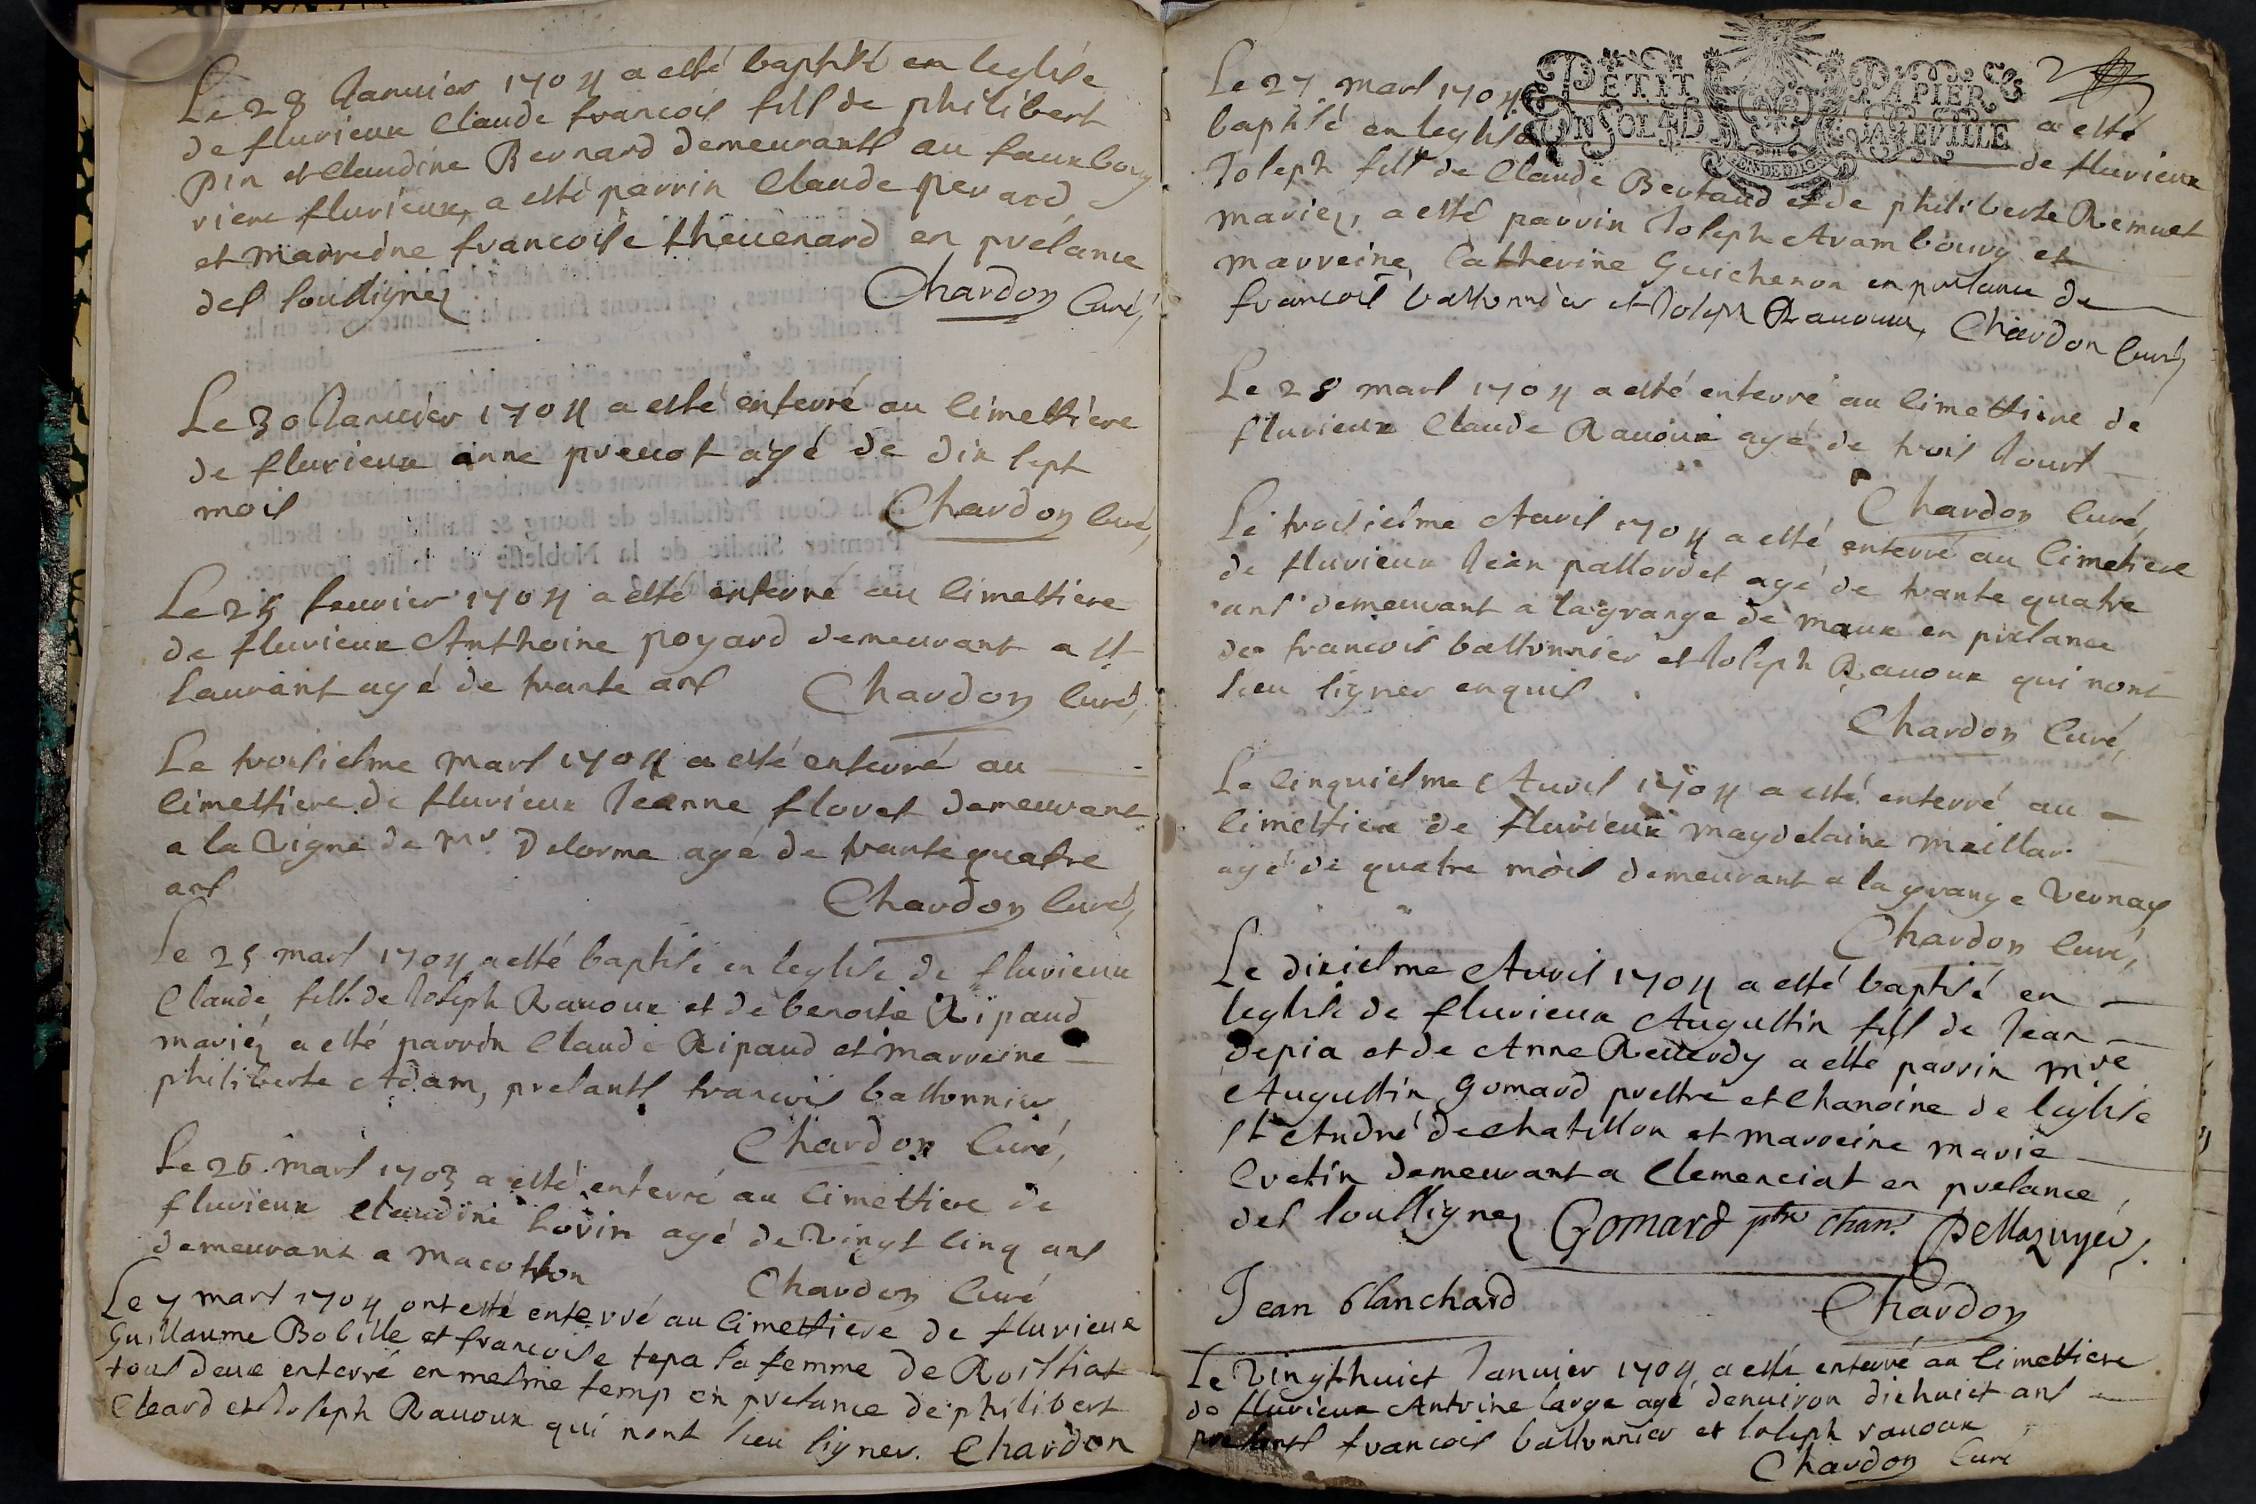 Le 28 Januier 1704 a esté baptisé en leglise
de flurieux Claude francois fils de philibert
pin et Claudine Bernard demeurants au fauxbourg
riere flurieux, a esté parrin Claude perard
et marreine francoise theuenard en presance
des soussignez Chardon Curé,
Le 30 Januier 1704 a esté enterré au Cimettiere
de flurieux anne preuot agé de dix sept
mois Chardon Curé,
Le 24 feurier 1704 a esté enterré au Cimettiere
de flurieux Anthoine poyard demeurant a st
Laurant agé de trante ans Chardon Curé,
Le troisiesme mars 1704 a esté enterré au
Cimettiere de flurieux Jeanne floret demeurant
a la Vigne de mr. Delorme agé de trante quatre
ans Chardon Curé,
Le 25 mars 1704 a esté baptisé en leglise de flurieux
Claude, fils de Joseph Rauoux et de benoite Ripaud
mariéz a esté parrin Claude Ripaud et marreine
philiberte Adam, presants francois bastonnier
Chardon Curé,
Le 26 mars 1703 a esté enterré au Cimettiere de
flurieux Claudine Lorin agé de Vingt Cinq ans
demeurant a macotton Chardon Curé
Le 7 mars 1704 ont esté enterré au Cimettiere de flurieux
Guillaume Bobille et francoise tepa sa femme de Roissiat
tous deux enterré en mesme temp en presance de philibert
Cleard et Joseph Rauoux qui nont sceu signer. Chardon
2
PETIT PAPIER
UN SOL 4 D LA FEVILLE
GEN DE DIION
Le 27 mars 1704 a esté
baptisé en leglise de flurieux
Joseph fils de Claude Bertaud et de philiberte Remuet
mariez, a esté parrin Joseph Arambourg et
marreine, Catherine Guichenon en presance de
francois bastonnier et Joseph Rauoux, Chardon Curé,
Le 28 mars 1704 a esté enterré au Cimettiere de
flurieux Claude Rauoux agé de trois Jours
Chardon Curé,
Le troisiesme Auril 1704 a esté enterré au Cimetiere
de flurieux Jean pallordet agé de trante quatre
ans demeurant a la grange de maux en presance
de francois bastonnier et Joseph Rauoux qui nont
sceu signer enquis
Chardon Curé,
Le Cinquiesme Auril 1704 a esté enterré au
Cimettiere de flurieux magdelaine meillar
agé de quatre mois demeurant a la grange Vernay
Chardon Curé,
Le dixiesme Auril 1704 a esté baptisé en
leglise de flurieux Augustin fils de Jean
depia et de Anne Reuerdy a esté parrin mre
Augustin Gomard prestre et Chanoine de leglise
st André de chatillon et marreine marie
Cretin demeurant a Clemenciat en presance
des soussignez Gomard ptre chan.
Jean blanchard Chardon
Le Vingthuict Januier 1704, a esté enterré au Cimettiere
de flurieux Antoine large agé denuiron dixhuict ans
presants francois bastonnier et Joseph rauoux
Chardon Curé